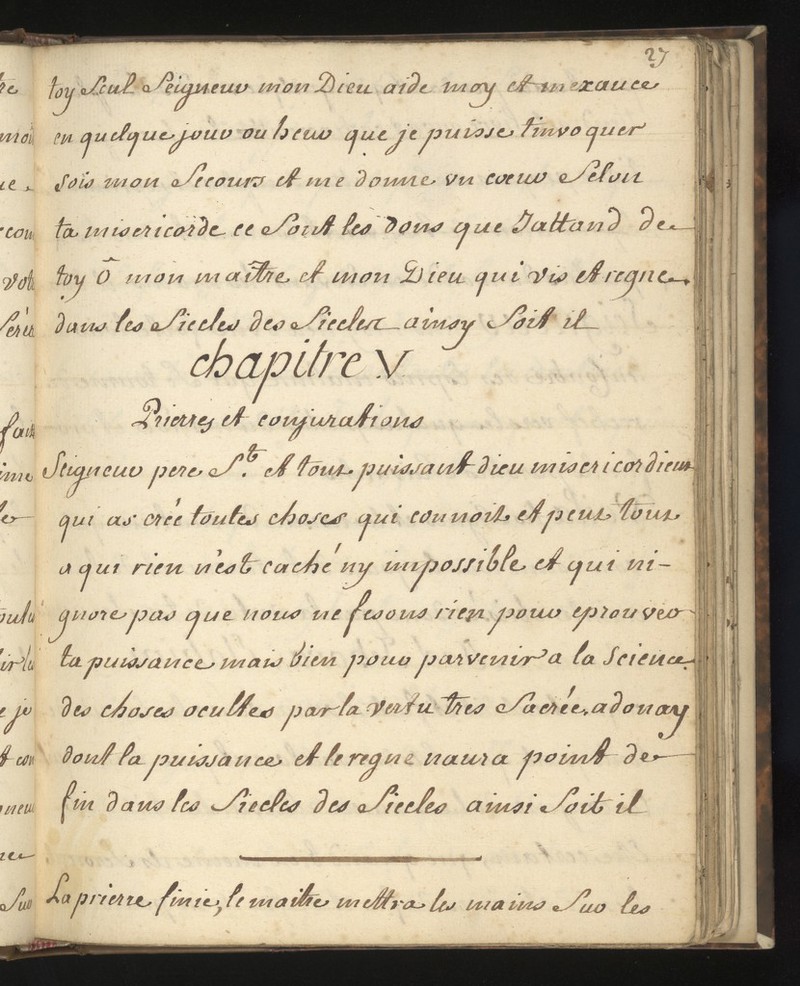 27
toy Seul Seigneur mon Dieu aide moy et mexauce
en quelque jour ou heur que je puisse tinvoquer
sois mon Secours et me donne un coeur Selon
ta misericorde ce Sont les dons que Jattand de
toy ô mon maître et mon Dieu qui vis et regne
dans les Siecles des Siecles ainsy Soit il
chapitre V
Prierres et conjurations
Seigneur pere St. et tout puissant dieu misericordieux
qui as crée toutes choses qui connoit et peut tout
a qui rien n'est caché ny impossible et qui ni-
gnore pas que nous ne fesons rien pour eprouver
ta puissance mais bien pour parvenir a la Science
des choses ocultes par la vertu tres Sacrée adonay
dont la puissance et le regne naura point de
fin dans les Siecles des Siecles ainsi Soit il
La prierre finie, le maitre mettra les mains Sur les